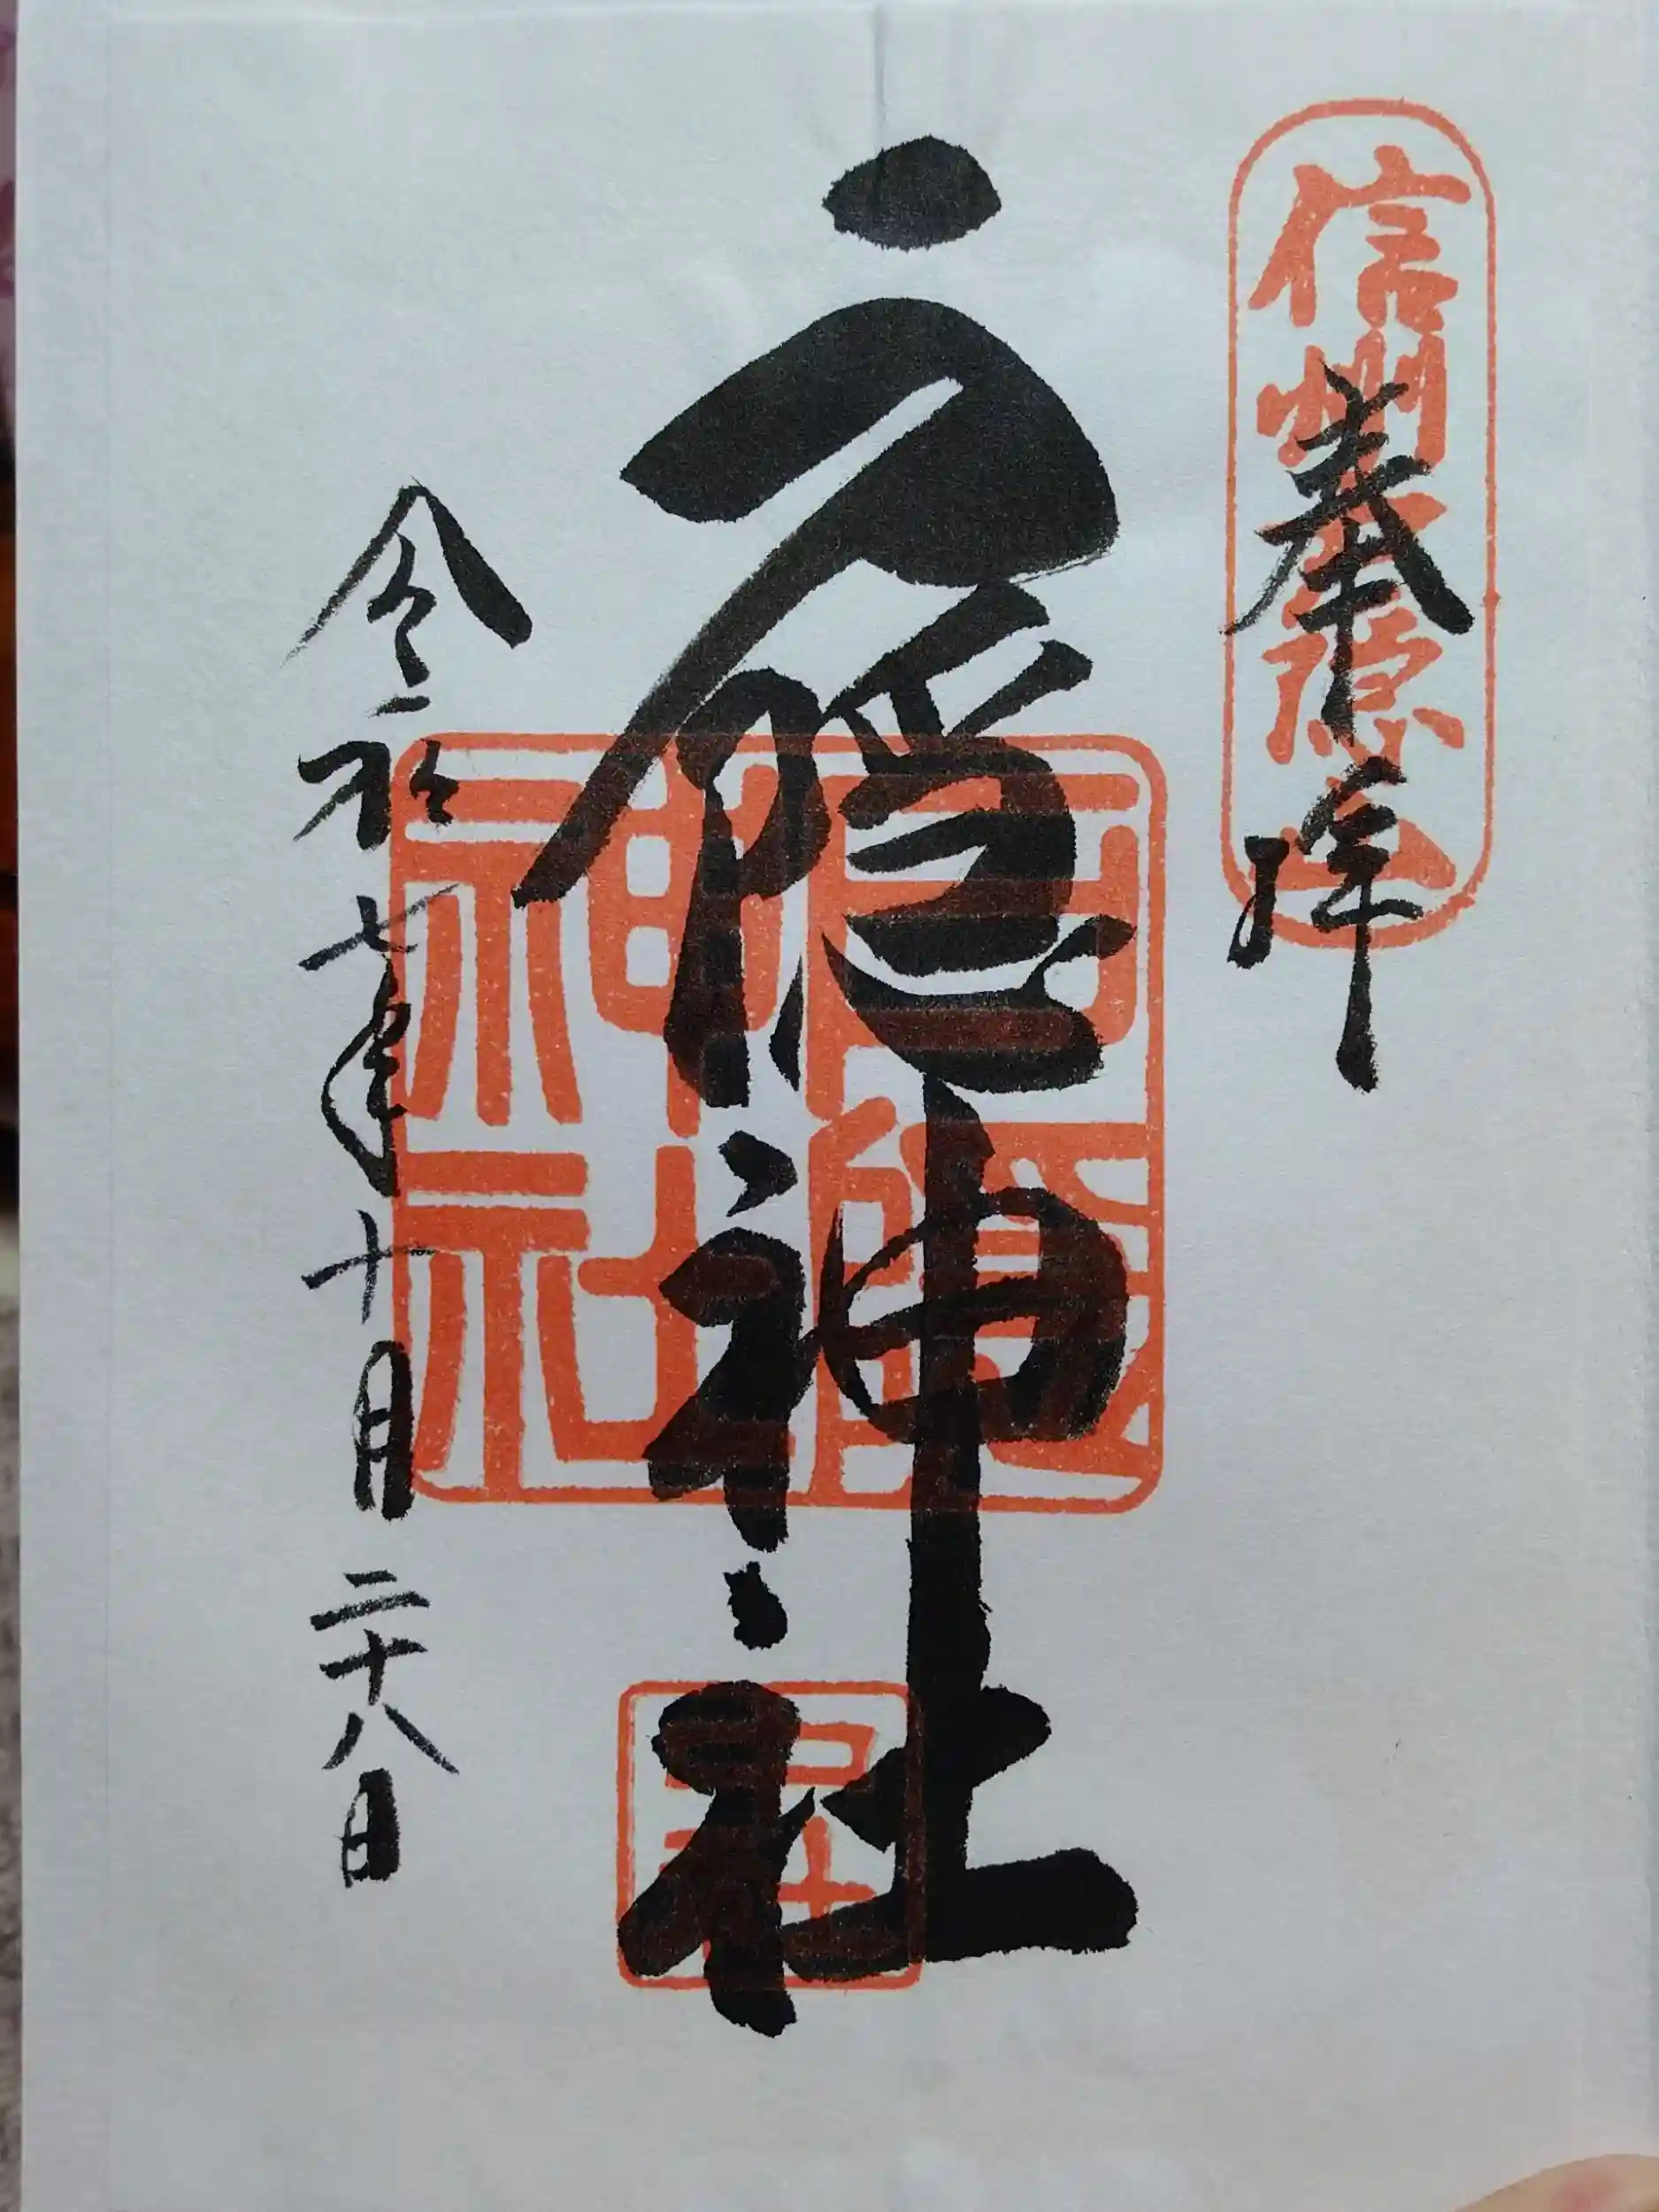 信州戸隠山
奉拝
戸隠神社
戸隠神社
令和七年十月二十八日